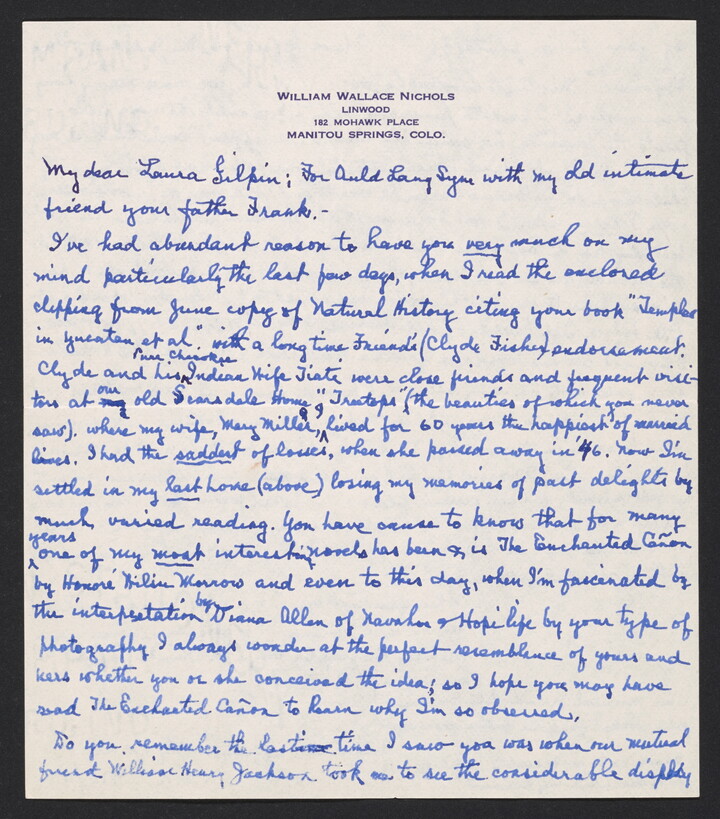 WILLIAM WALLACE NICHOLS
LINWOOD
182 MOHAWK PLACE
MANITOU SPRINGS, COLO.
My dear Laura Gilpin; For Auld Lang Syne with my old intimate
friend your father Frank.-
I've had abundant reason to have you very much on my
mind particularly the last few days, when I read the enclosed
clipping from June copy of Natural History citing your book "Temples
in Yucatan et al". with a long time Friend's (Clyde Fisher) endorsement.
Clyde and his pure Cherokee Indian Wife Te Ata were close friends and frequent visi-
tors at our old Scarsdale Home, "Treetops" (the beauties of which you never
saw). where my wife, Mary Miller, & I lived for 60 years the happiest of married
lives. I had the saddest of losses, when she passed away in '46. Now I'm
settled in my last home (above) losing my memories of past delights by
much, varied reading. You have cause to know that for many
years one of my most interesting novels has been & is The Enchanted Cañon
by Honoré Willsie Morrow and even to this day, when I'm fascinated by
the interpretation by Diana Allen of Navahoe & Hopi life by your type of
photography I always wonder at the perfect resemblance of yours and
hers whether you or she conceived the idea; so I hope you may have
read The Enchanted Cañon to learn why I'm so obsessed.
Do you remember the last time I saw you was when our mutual
friend William Henry Jackson took me to see the considerable display